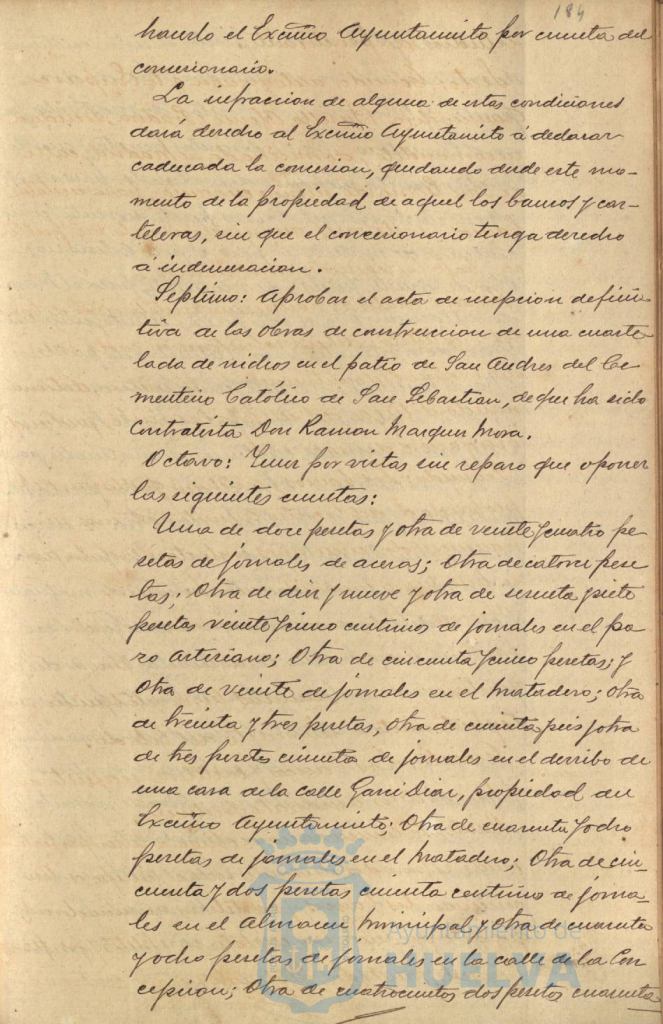 184
hacerlo el Excmo Ayuntamiento por cuenta del
concesionario.
La infraccion de alguna de estas condiciones
dará derecho al Excmo Ayuntamiento á declarar
caducada la concesion, quedando desde este mo-
mento de la propiedad de aquel los bancos y car-
teleras, sin que el concesionario tenga derecho
á indemnizacion.
Septimo: Aprobar el acta de recepcion defini-
tiva de las obras de construccion de una cuarte-
lada de nichos en el patio de San Andres del Ce-
menterio Católico de San Sebastian, de que ha sido
Contratista Don Ramon Marquez Mora.
Octavo: Tener por vistas sin reparo que oponer
las siguientes cuentas:
Una de doce pesetas y otra de veinte y cuatro pe-
setas de jornales de aceras; Otra de catorce pese-
tas; Otra de diez y nueve y otra de sesenta y siete
pesetas veinte y cinco centimos de jornales en el po-
zo Artesiano; Otra de cincuenta y cinco pesetas; y
Otra de veinte de jornales en el Matadero; Otra
de treinta y tres pesetas, Otra de y otra
de tres pesetas cincuenta de jornales en el derribo de
una casa de la calle Garci Diaz, propiedad del
Excmo Ayuntamiento; Otra de cuarenta y ocho
pesetas de jornales en el Matadero; Otra de cin-
cuenta y dos pesetas cincuenta centimos de jorna-
les en el Almacen Municipal y otra de cuarenta
y ocho pesetas de jornales en la calle de la Con-
cepcion; Otra de cuatrocientos dos pesetas cuarenta
Ayuntamiento de
HUELVA